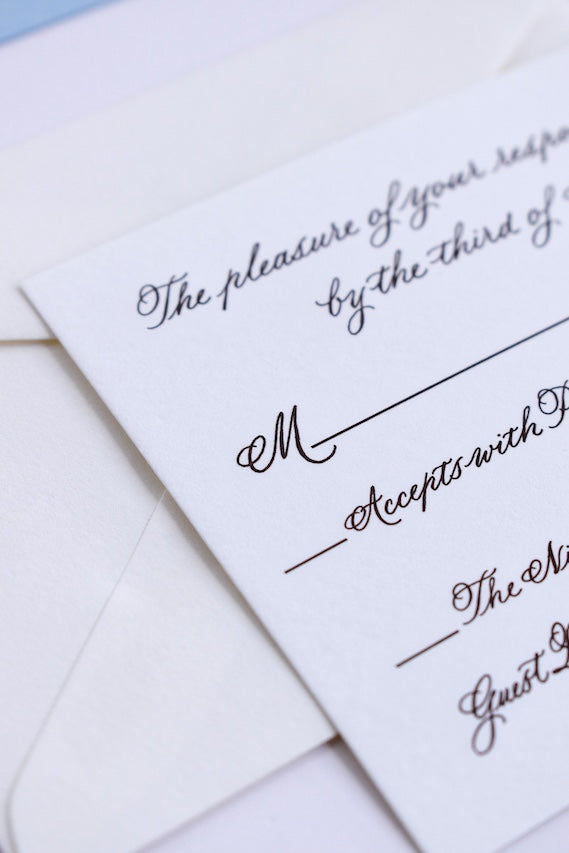 The pleasure of your respo
by the third of
M
Accepts with P
The Ni
Guest